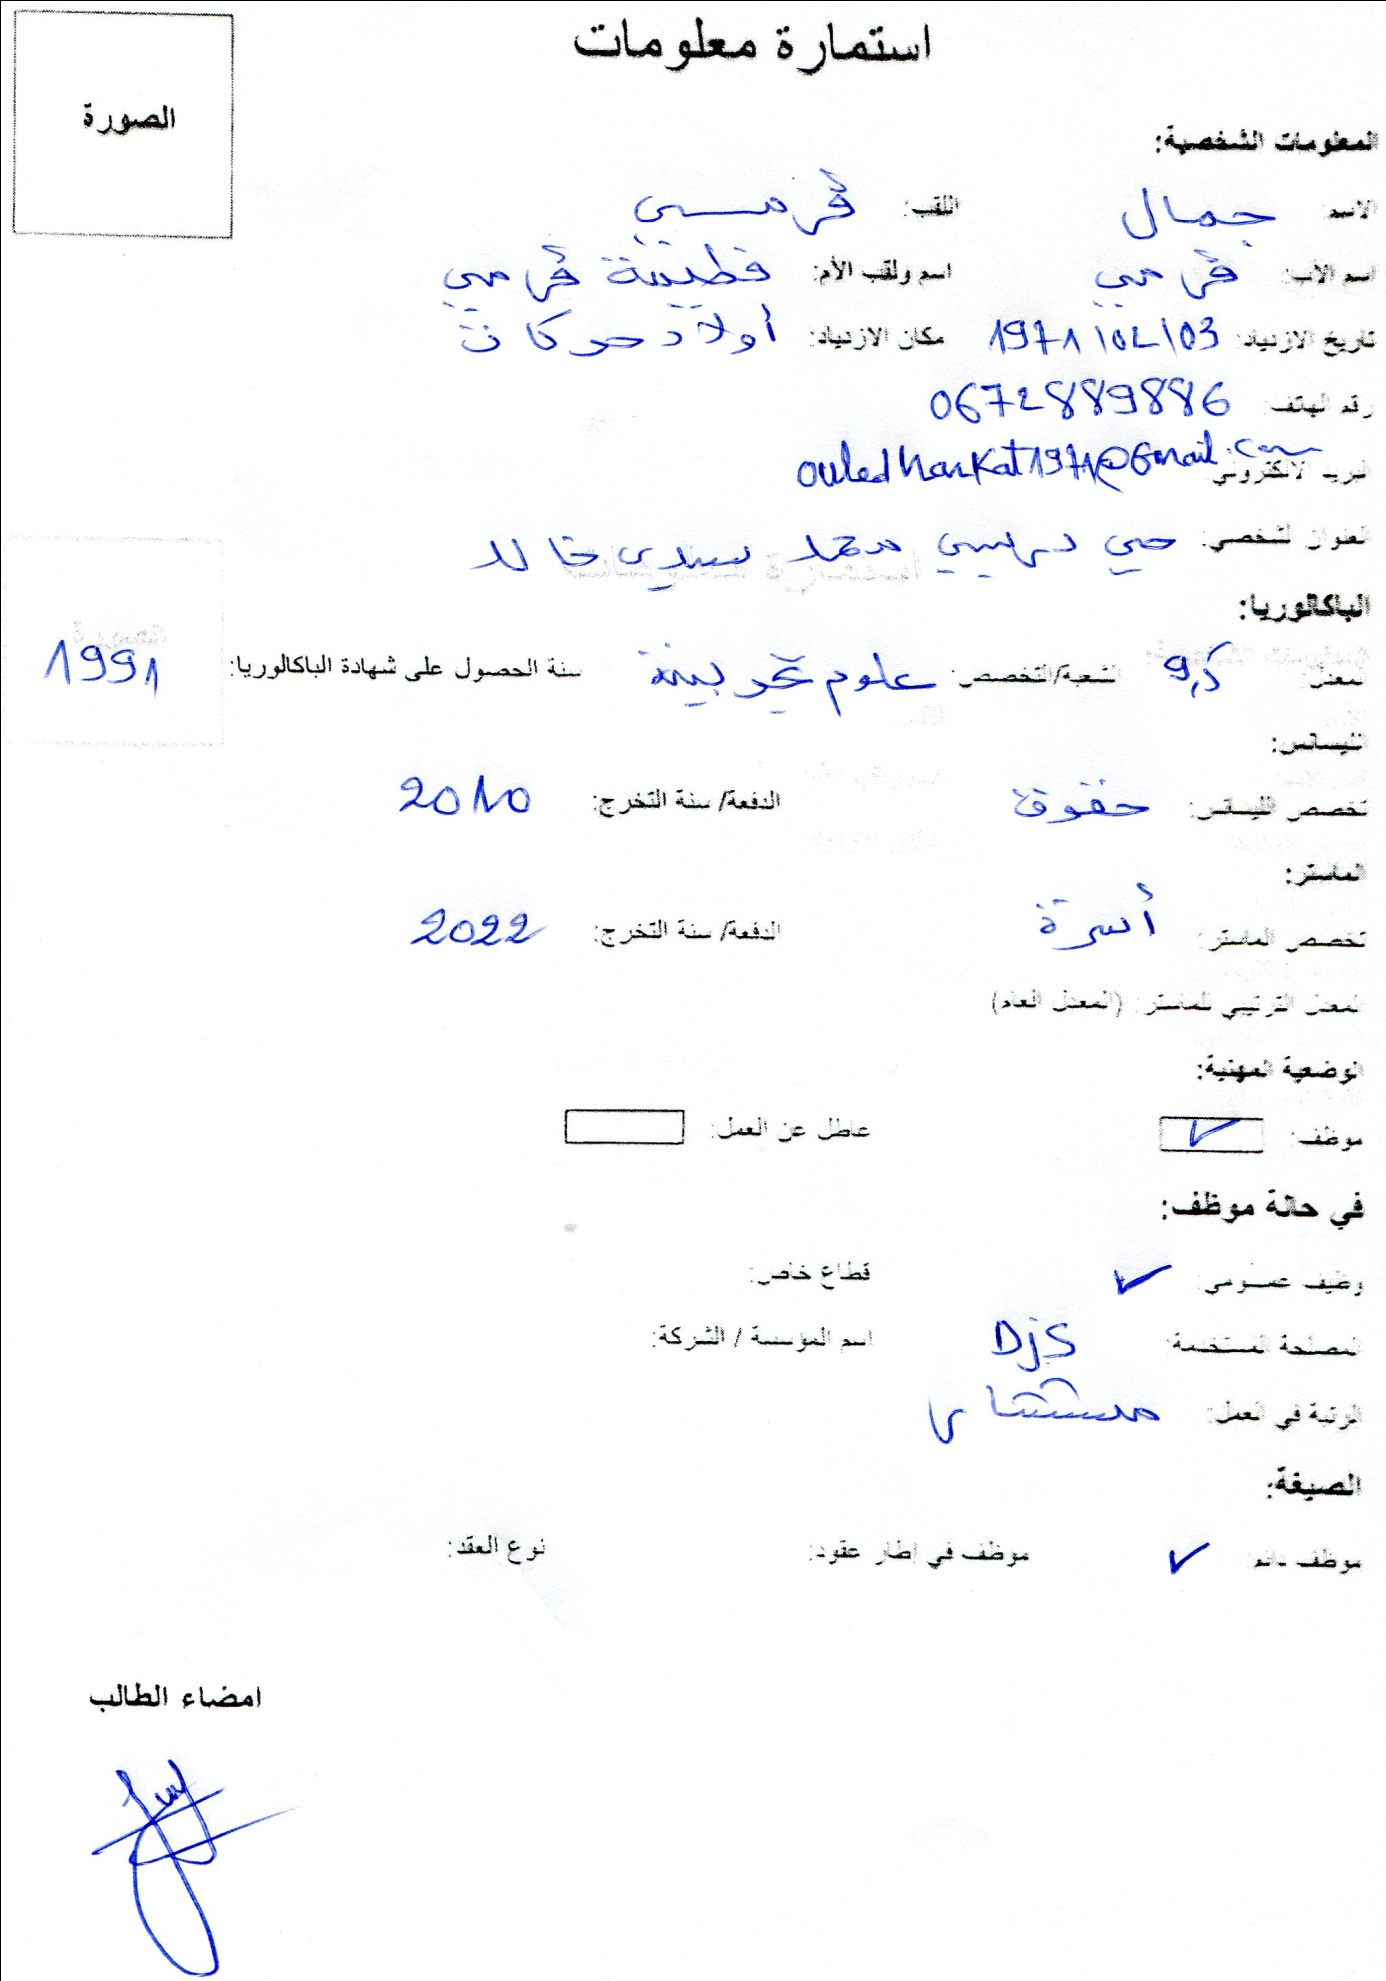 استمارة معلومات
الصورة
المعلومات الشخصية:
الاسم: جمال اللقب: ڤرمسي
اسم الأب: ڤرمي اسم ولقب الأم: ڤرمي
تاريخ الازدياد: 1971/02/03 مكان الازدياد: أولاد حركات
رقم الهاتف: 0672889886
البريد الالكتروني: ouledharkat1971@Gmail.com
العنوان الشخصي: حي محمد سيدي خالد
الباكالوريا:
المعدل: 9,5 الشعبة/التخصص: علوم تجريبية سنة الحصول على شهادة الباكالوريا: 1991
الليسانس:
تخصص الليسانس: حقوق الدفعة/ سنة التخرج: 2010
الماستر:
تخصص الماستر: أسرة الدفعة/ سنة التخرج: 2022
المعدل الترتيبي للماستر: (المعدل العام)
الوضعية المهنية:
موظف: ✓ عاطل عن العمل:
في حالة موظف:
وظيف عمومي: ✓ قطاع خاص:
المصلحة المستخدمة: Djs اسم المؤسسة / الشركة:
الرتبة في العمل: مستشار
الصيغة:
موظف دائم: ✓ موظف في إطار عقود: نوع العقد:
امضاء الطالب